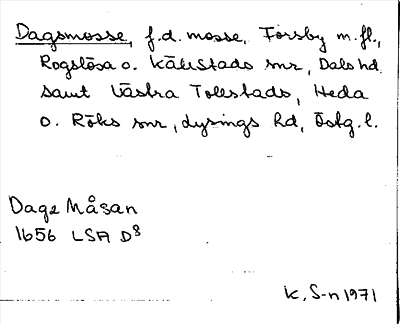 Dagsmosse, f.d. mosse,Forsby m.fl.,
Rogslösa o. Källstads snr, Dals hd
samt Västra Tollstads, Heda
o. Röks snr, Lysings hd, Östg. l.
Dage Måsan
1656 LSA D8
K. S-n 1971